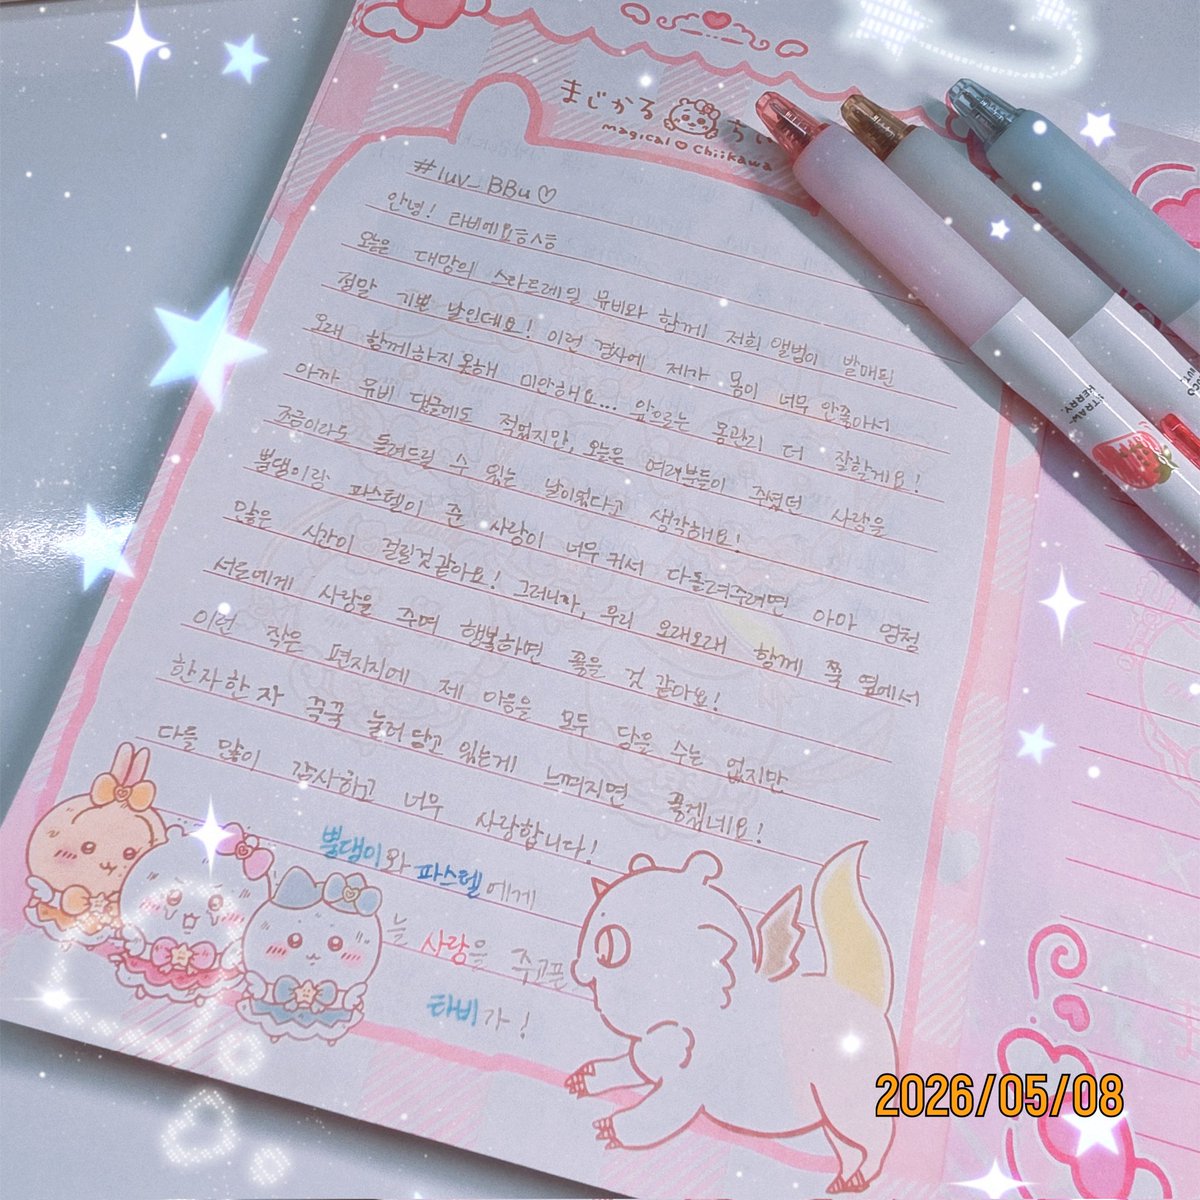 まじかる ち
magical ♡ chiikawa
#luv_BBu♡
안녕! 타비에요ㅎㅅㅎ
오늘은 대망의 스타드레일 뮤비와 함께 저희 앨범이 발매된
정말 기쁜 날인데요! 이런 경사에 제가 몸이 너무 안좋아서
오래 함께하지 못해 미안해요... 앞으로는 몸관리 더 잘할게요!
아까 뮤비 댓글에도 적었지만, 오늘은 여러분들이 주셨던 사랑을
조금이라도 돌려드릴 수 있는 날이었다고 생각해요!
뿔댕이랑 파스텔이 준 사랑이 너무 커서 다돌려주려면 아마 엄청
많은 시간이 걸릴것같아요! 그러니까, 우리 오래오래 함께 쭉 옆에서
서로에게 사랑을 주며 행복하면 좋을 것 같아요!
이런 작은 편지지에 제 마음을 모두 담을 수는 없지만
한자한자 꾹꾹 눌러담고 있는게 느껴지면 좋겠네요!
다들 많이 감사하고 너무 사랑합니다!
뿔댕이와 파스텔에게
늘 사랑을 주고픈
타비가!
STRAW-
BERRY
2026/05/08